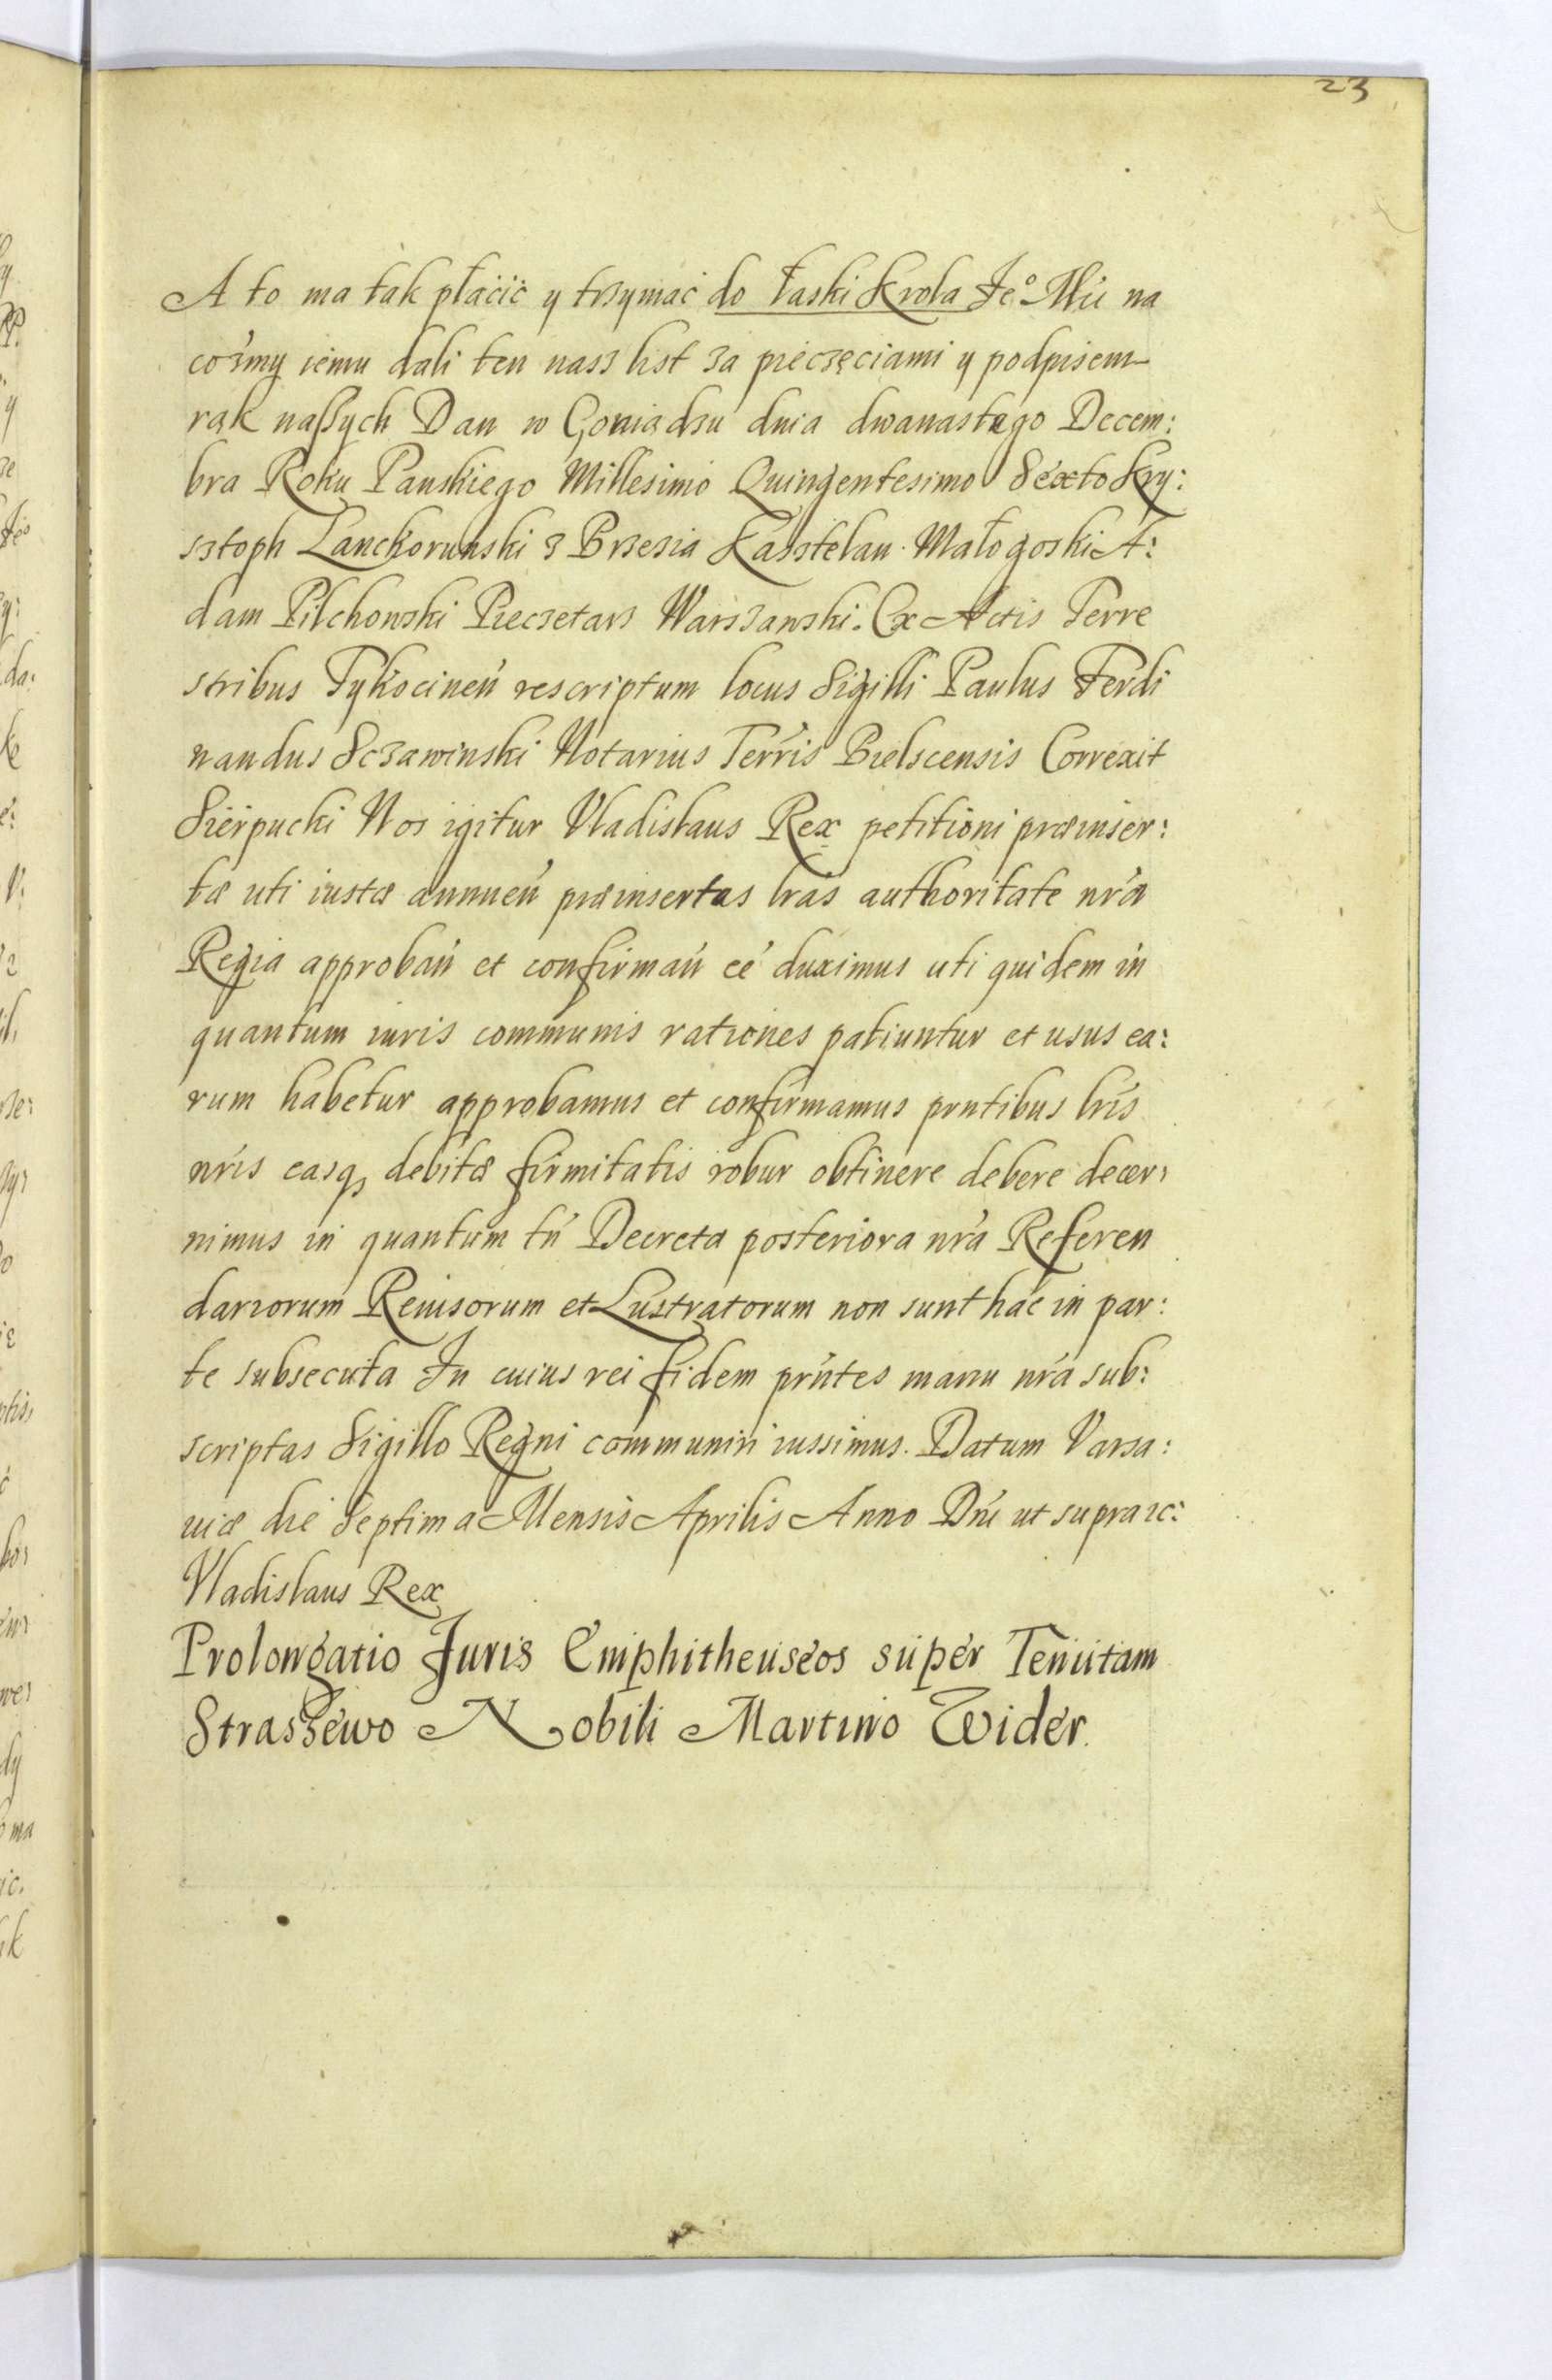 23
A to ma tak płacić y trzymać do łaski Krola Je° Mści na
cośmy iemu dali ten nasz list za pieczęciami y podpisem
rąk naszych Dan w Goniadzu dnia dwanastego Decem:
bra Roku Panskiego Millesimo Quingentesimo Sexto Kry:
sztoph Lanckorunski z Brzezia Kasztelan Małogoski A:
dam Pilchowski Pieczetarz Warszawski. Ex Actis Terre
stribus Tykocineń rescriptum locus Sigilli Paulus Ferdi
nandus Sczawinski Notarius Terris Bielscensis Correxit
Sierpucki Nos igitur Vladislaus Rex petitioni præinser:
tæ uti iustæ annueń præinsertas lras authoritate nra
Regia approbań et confirmań eé duximus uti quidem in
quantum iuris communis rationes patiuntur et usus ea:
rum habetur approbamus et confirmamus pntibus lris
nris easq, debitæ firmitatis robur obtinere debere decer:
nimus in quantum tń Decreta posteriora nra Referen
dariorum Reuisorum et Lustratorum non sunt hac in par:
te subsecuta In cuius rei fidem prntes manu nra sub:
scriptas Sigillo Regni communiri iussimus. Datum Varsa:
uiæ die Septima Mensis Aprilis Anno Dni ut supra ic:
Vladislaus Rex
Prolongatio Juris Emphitheuseos super Tenutam
Straszewo Nobili Martino Wider.